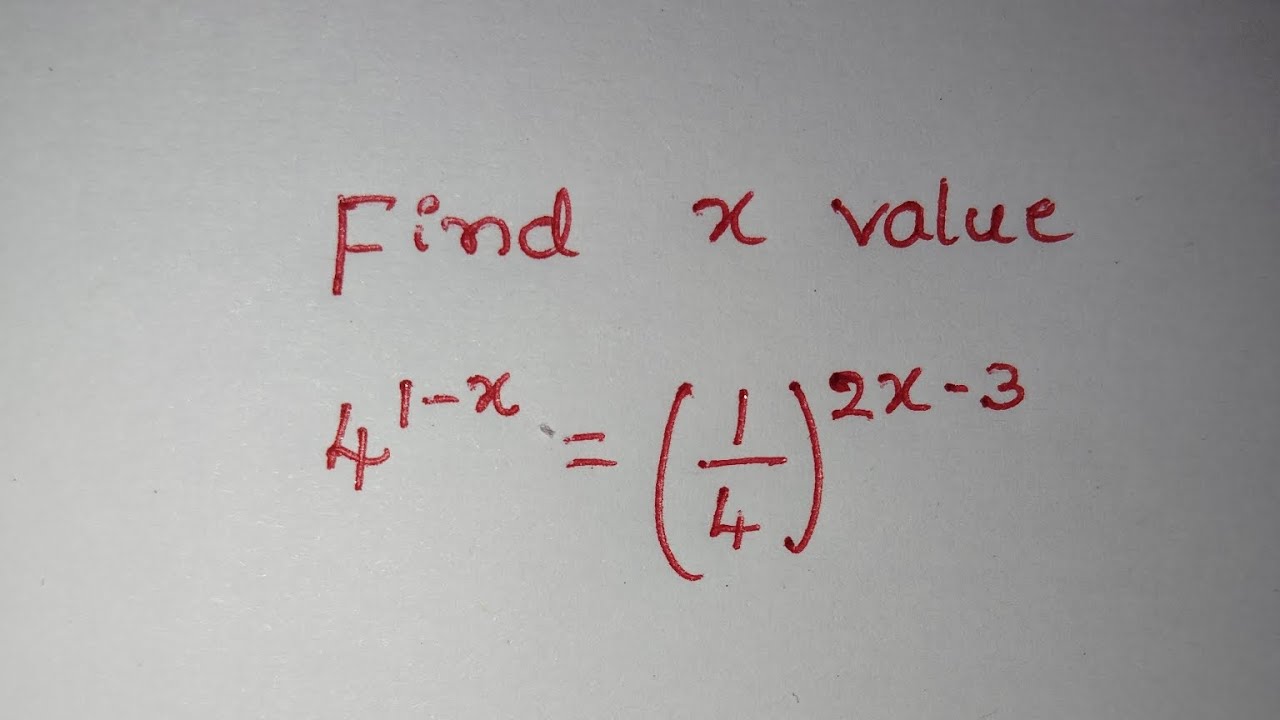 Find x value
4^{1-x} = (1/4)^{2x-3}